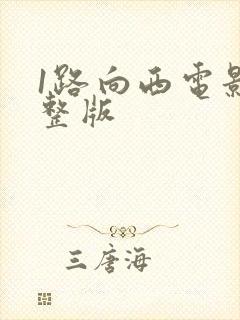 1路向西电影
整版
三唐海